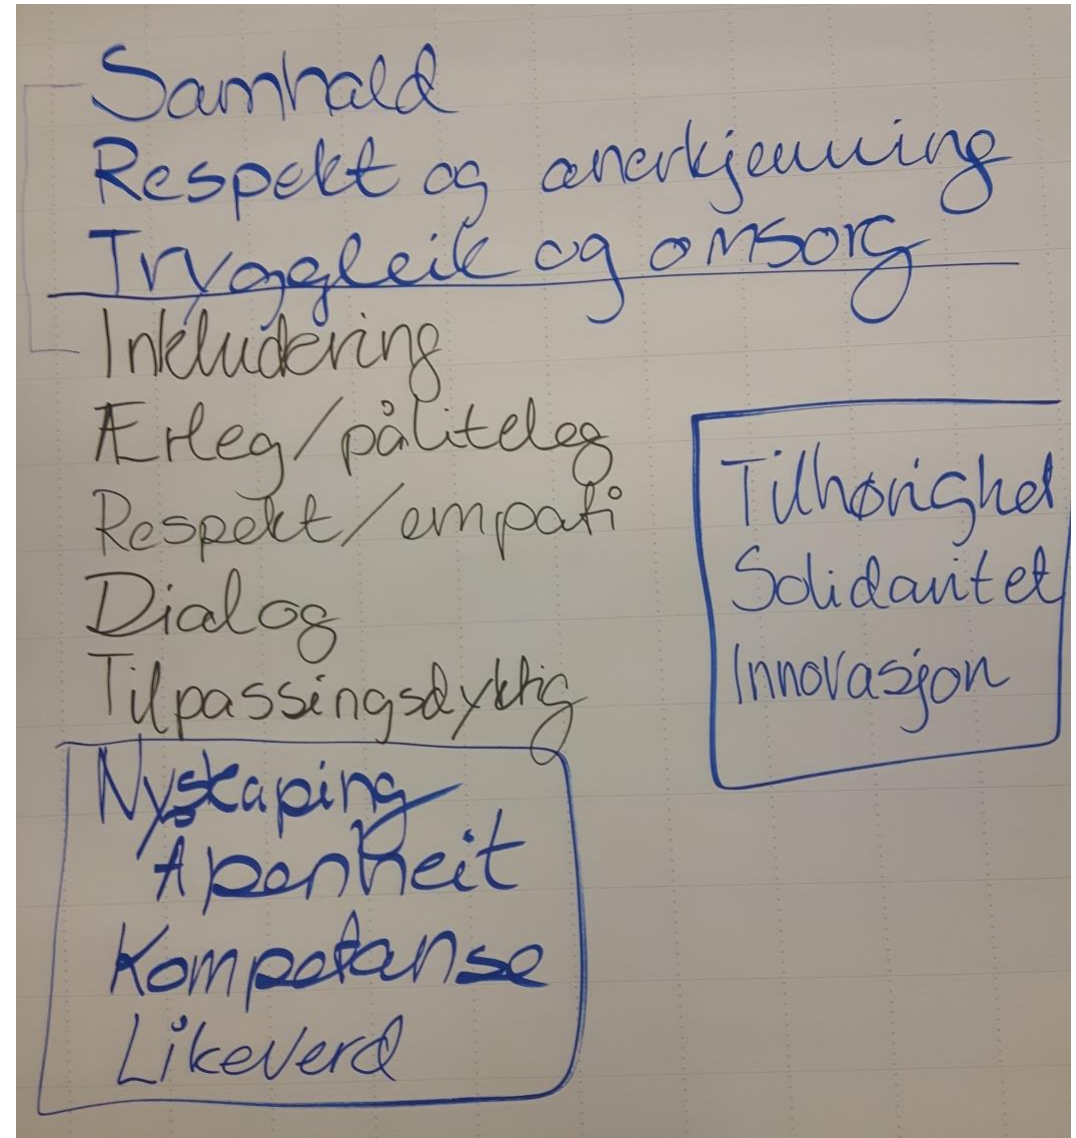 Samhald
Respekt og anerkjenning
Tryggleik og omsorg
Inkludering
Ærleg/påliteleg
Respekt/empati
Dialog
Tilpassingsdyktig
Nyskaping
Åpenheit
Kompetanse
Likeverd
Tilhørighet
Solidaritet
Innovasjon